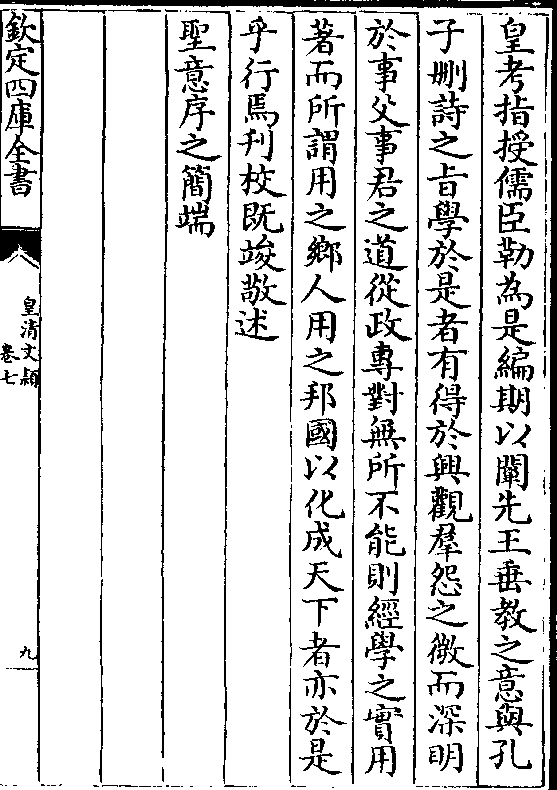 皇考指授儒臣勒為是編期以闡先王垂教之意與孔
子刪詩之旨學於是者有得於興觀羣怨之微而深明
於事父事君之道從政專對無所不能則經學之實用
著而所謂用之鄉人用之邦國以化成天下者亦於是
乎行焉刋校既竣敬述
聖意序之簡端
欽定四庫全書
皇清文穎
卷七
九